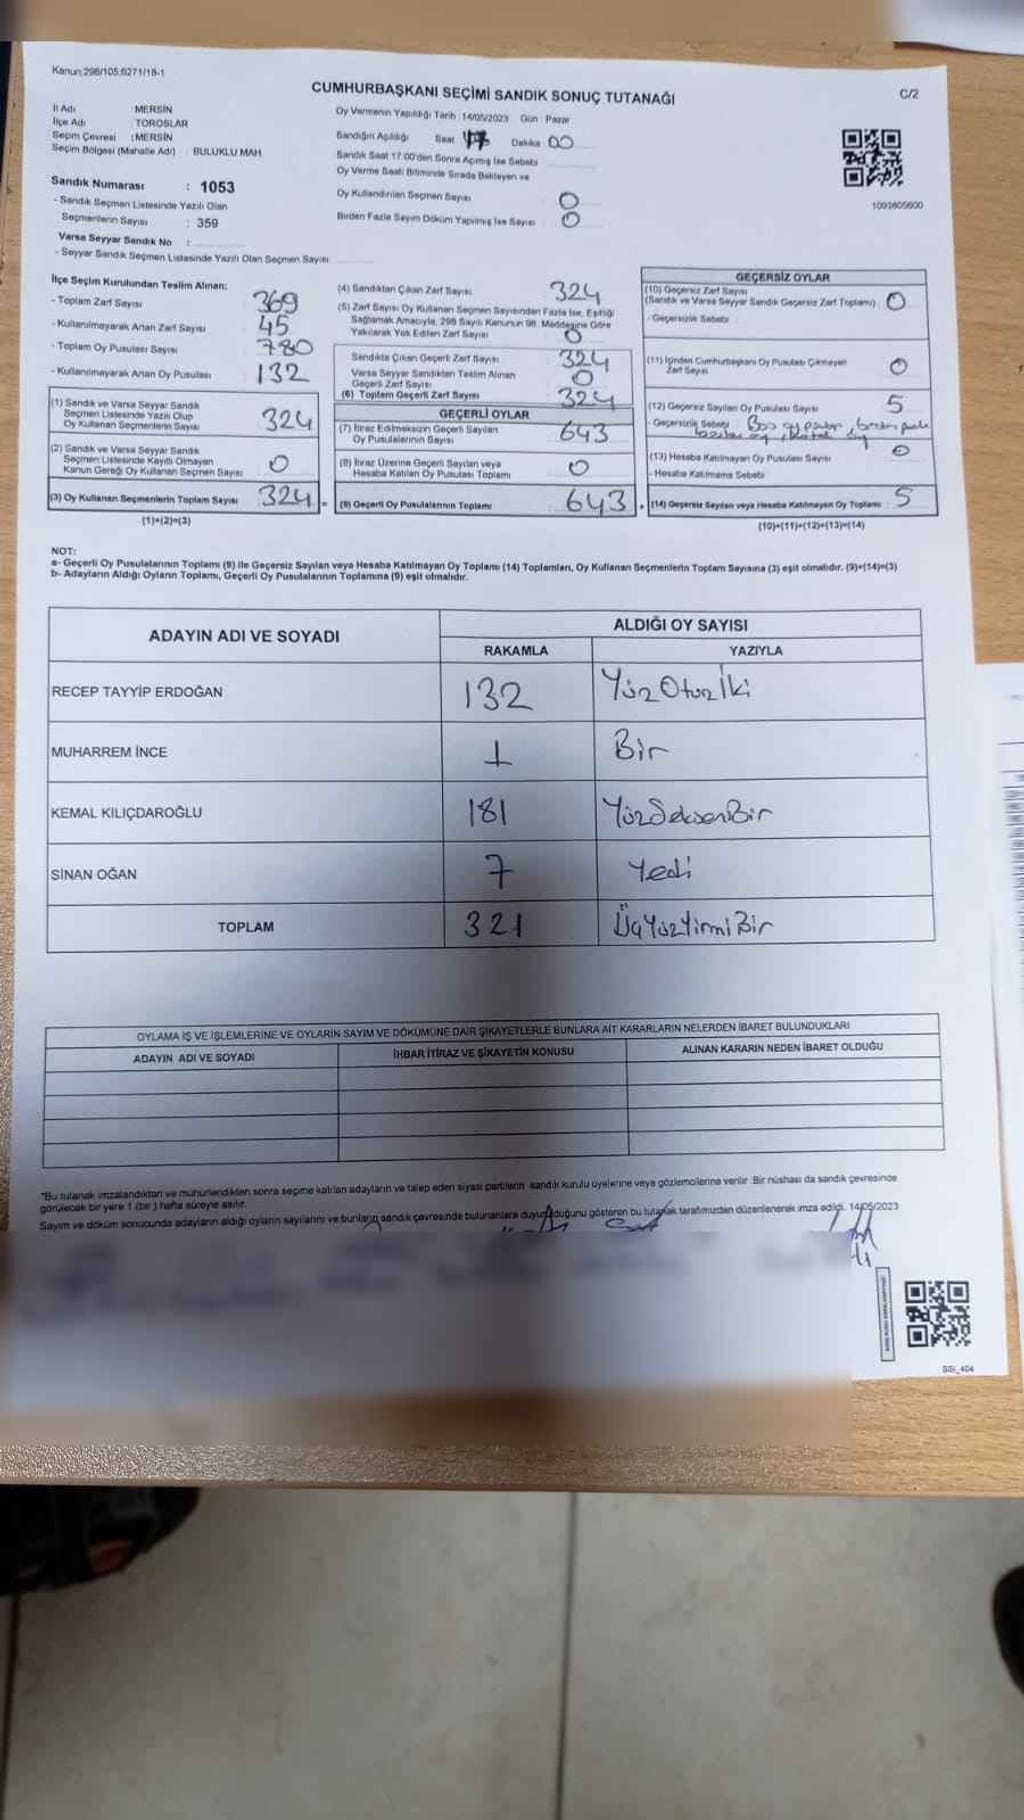 Kanun:298/105;6271/18-1
CUMHURBAŞKANI SEÇİMİ SANDIK SONUÇ TUTANAĞI
C/2
İl Adı : MERSİN
İlçe Adı : TOROSLAR
Seçim Çevresi : MERSİN
Seçim Bölgesi (Mahalle Adı) : BULUKLU MAH
Oy Vermenin Yapıldığı Tarih : 14/05/2023 Gün : Pazar
Sandığın Açıldığı Saat 17 Dakika 00
Sandık Saat 17:00'den Sonra Açılmış İse Sebebi
Oy Verme Saati Bitiminde Sırada Bekleyen ve
Oy Kullandırılan Seçmen Sayısı 0
Birden Fazla Sayım Döküm Yapılmış İse Sayısı 0
1093605600
Sandık Numarası : 1053
- Sandık Seçmen Listesinde Yazılı Olan
Seçmenlerin Sayısı : 359
Varsa Seyyar Sandık No :
- Seyyar Sandık Seçmen Listesinde Yazılı Olan Seçmen Sayısı
İlçe Seçim Kurulundan Teslim Alınan:
- Toplam Zarf Sayısı 369
- Kullanılmayarak Artan Zarf Sayısı 45
- Toplam Oy Pusulası Sayısı 780
- Kullanılmayarak Artan Oy Pusulası 132
(1) Sandık ve Varsa Seyyar Sandık
Seçmen Listesinde Yazılı Olup
Oy Kullanan Seçmenlerin Sayısı 324
(2) Sandık ve Varsa Seyyar Sandık
Seçmen Listesinde Kayıtlı Olmayan
Kanun Gereği Oy Kullanan Seçmen Sayısı 0
(3) Oy Kullanan Seçmenlerin Toplam Sayısı 324 =
(1)+(2)=(3)
(4) Sandıktan Çıkan Zarf Sayısı 324
(5) Zarf Sayısı Oy Kullanan Seçmen Sayısından Fazla İse, Eşitliği
Sağlamak Amacıyla, 298 Sayılı Kanunun 98. Maddesine Göre
Yakılarak Yok Edilen Zarf Sayısı 0
Sandıkta Çıkan Geçerli Zarf Sayısı 324
Varsa Seyyar Sandıktan Teslim Alınan
Geçerli Zarf Sayısı 0
(6) Toplam Geçerli Zarf Sayısı 324
GEÇERLİ OYLAR
(7) İtiraz Edilmeksizin Geçerli Sayılan
Oy Pusulalarının Sayısı 643
(8) İtiraz Üzerine Geçerli Sayılan veya
Hesaba Katılan Oy Pusulası Toplamı 0
(9) Geçerli Oy Pusulalarının Toplamı 643 +
GEÇERSİZ OYLAR
(10) Geçersiz Zarf Sayısı
(Sandık ve Varsa Seyyar Sandık Geçersiz Zarf Toplamı) 0
- Geçersizlik Sebebi
(11) İçinden Cumhurbaşkanı Oy Pusulası Çıkmayan
Zarf Sayısı 0
(12) Geçersiz Sayılan Oy Pusulası Sayısı 5
- Geçersizlik Sebebi Boş oy
(13) Hesaba Katılmayan Oy Pusulası Sayısı 0
- Hesaba Katılmama Sebebi
(14) Geçersiz Sayılan veya Hesaba Katılmayan Oy Toplamı : 5
(10)+(11)+(12)+(13)=(14)
NOT:
a- Geçerli Oy Pusulalarının Toplamı (9) ile Geçersiz Sayılan veya Hesaba Katılmayan Oy Toplamı (14) Toplamları, Oy Kullanan Seçmenlerin Toplam Sayısına (3) eşit olmalıdır. (9)+(14)=(3)
b- Adayların Aldığı Oyların Toplamı, Geçerli Oy Pusulalarının Toplamına (9) eşit olmalıdır.
ADAYIN ADI VE SOYADI
ALDIĞI OY SAYISI
RAKAMLA YAZIYLA
RECEP TAYYİP ERDOĞAN 132 Yüz Otuz İki
MUHARREM İNCE 1 Bir
KEMAL KILIÇDAROĞLU 181 YüzSeksenBir
SİNAN OĞAN 7 Yedi
TOPLAM 321 ÜçYüzYirmiBir
OYLAMA İŞ VE İŞLEMLERİNE VE OYLARIN SAYIM VE DÖKÜMÜNE DAİR ŞİKAYETLERLE BUNLARA AİT KARARLARIN NELERDEN İBARET BULUNDUKLARI
ADAYIN ADI VE SOYADI İHBAR İTİRAZ VE ŞİKAYETİN KONUSU ALINAN KARARIN NEDEN İBARET OLDUĞU
*Bu tutanak imzalandıktan ve mühürlendikten sonra seçime katılan adayların ve talep eden siyasi partilerin sandık kurulu üyelerine veya gözlemcilerine verilir. Bir nüshası da sandık çevresinde
görülecek bir yere 1 (bir) hafta süreyle asılır.
Sayım ve döküm sonucunda adayların aldığı oyların sayılarını ve bunların sandık çevresinde bulunanlara duyurulduğunu gösteren bu tutanak tarafımızdan düzenlenerek imza edildi. 14/05/2023
SSİ_404